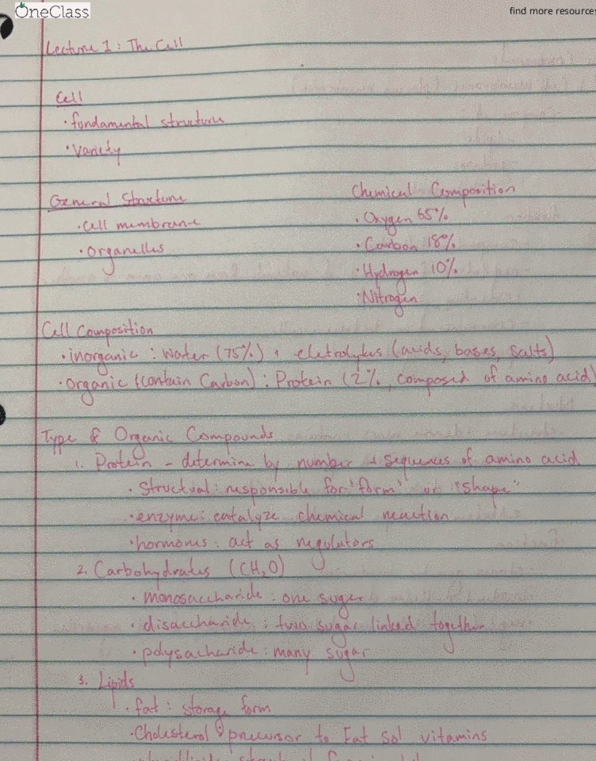 OneClass
find more resources
Lecture 1: The Cell
Cell
• fundamental structure
• variety
General Structure
• cell membrane
• Organelles
Chemical Composition
• Oxygen 65%
• Carbon 18%
• Hydrogen 10%
• Nitrogen
Cell Composition
• inorganic : water (75%) + eletrolytes (acids, bases, salts)
• organic (contain Carbon) : Protein (2%, composed of amino acid)
Type of Organic Compounds
1. Protein - determine by number + sequences of amino acid
• Structural : responsible for "form" or "shape"
• enzyme : catalyze chemical reaction
• hormones : act as regulators
2. Carbohydrates (CH2O)
• monosaccharide : one sugar
• disaccharide : two sugar linked together
• polysacharide : many sugar
3. Lipids
• fat : storage form
• Cholesterol : precursor to Fat Sol vitamins